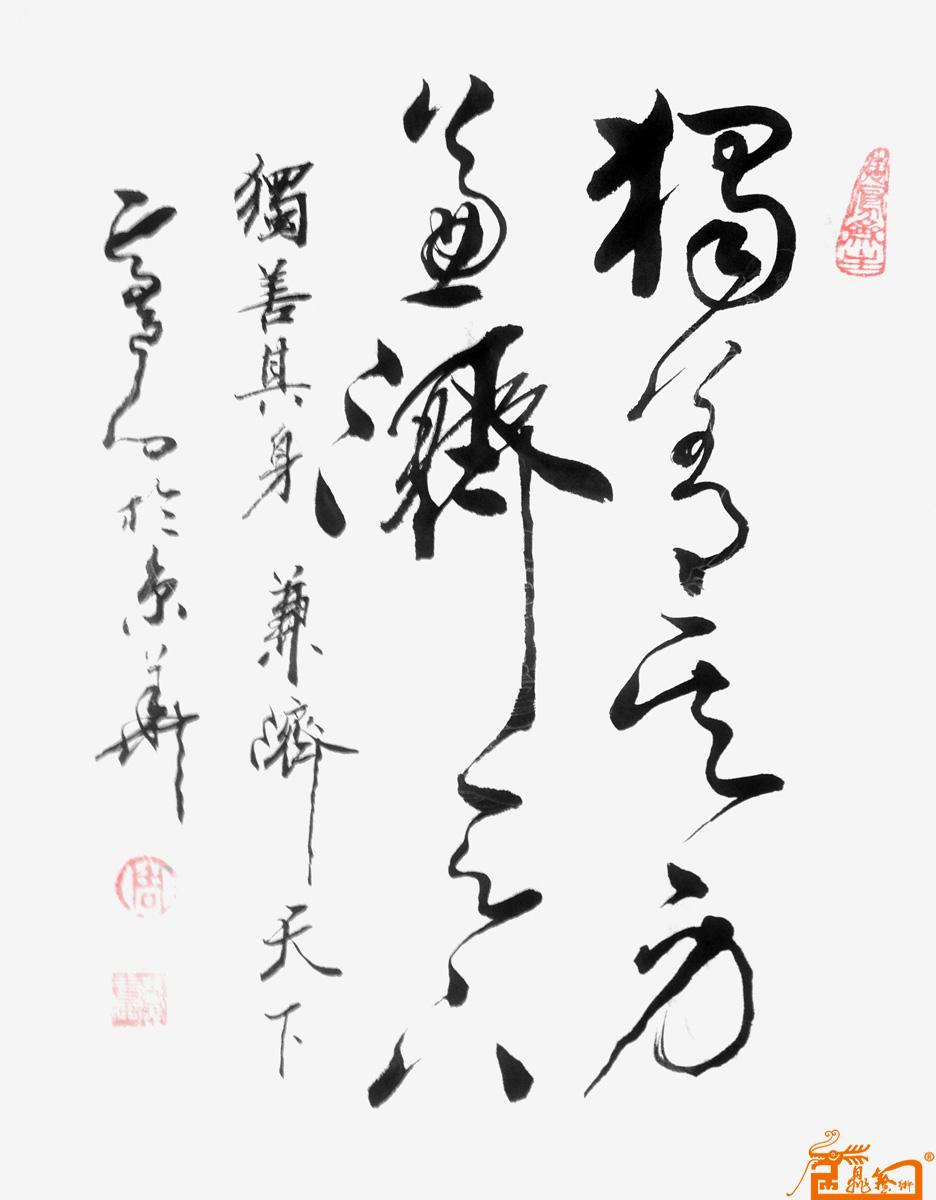 獨善其身
兼濟天下
獨善其身 兼濟天下
於京華
周